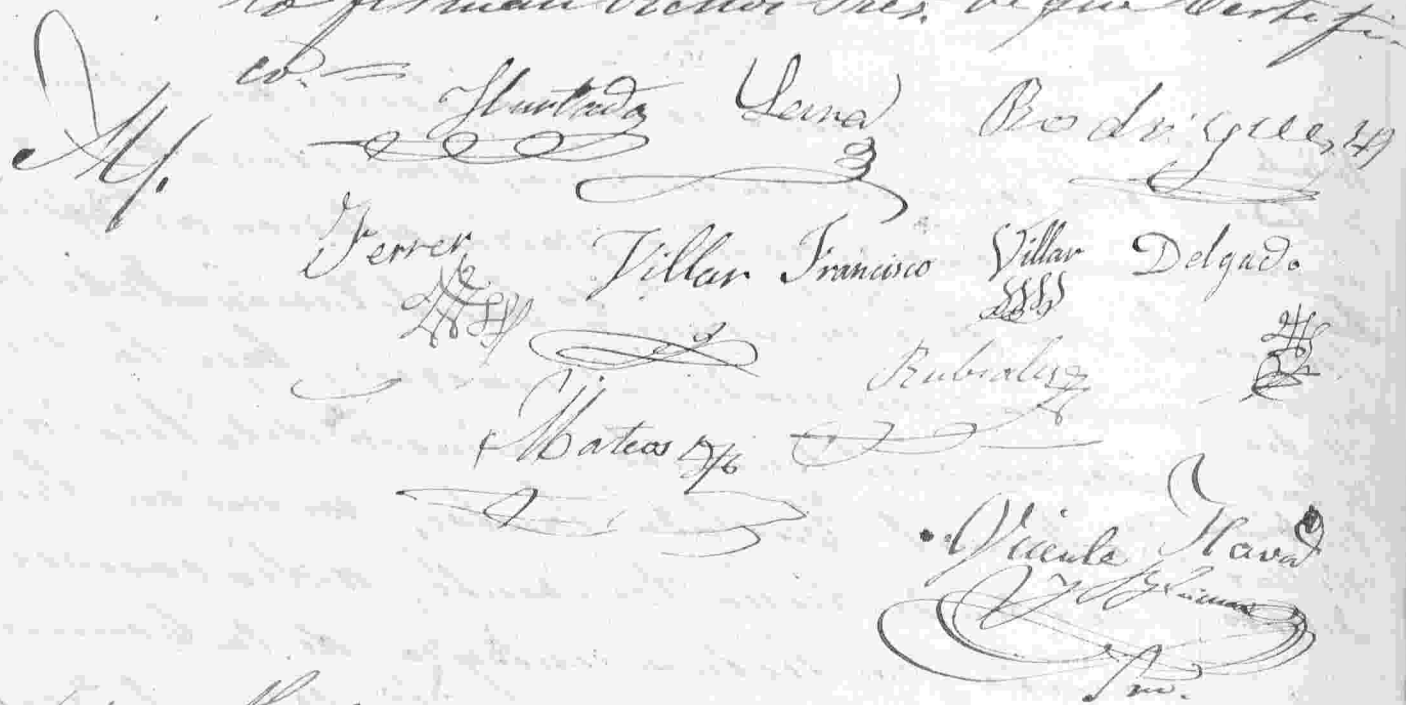 lo firman dichos Sres. de que certifi
co.
Hurtado Serna Rodriguez
Ferrer Villar Francisco Villar Delgado
Rubiales
Mateos
Vicente Nava
y
Srio.